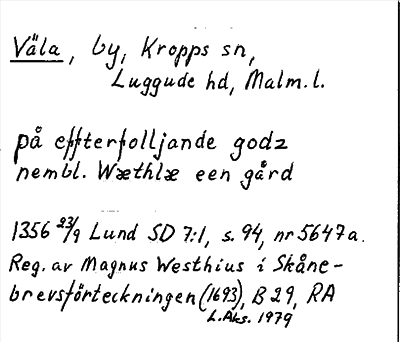 Väla, by, Kropps sn,
Luggude hd, Malm. l.
på effterfolljande godz
nembl. Wæthlæ een gård
1356 23/9 Lund SD 7:1, s. 94, nr 5647a.
Reg. av Magnus Westhius i Skåne-
brevsförteckningen (1693), B 29, RA
L. Aks. 1979